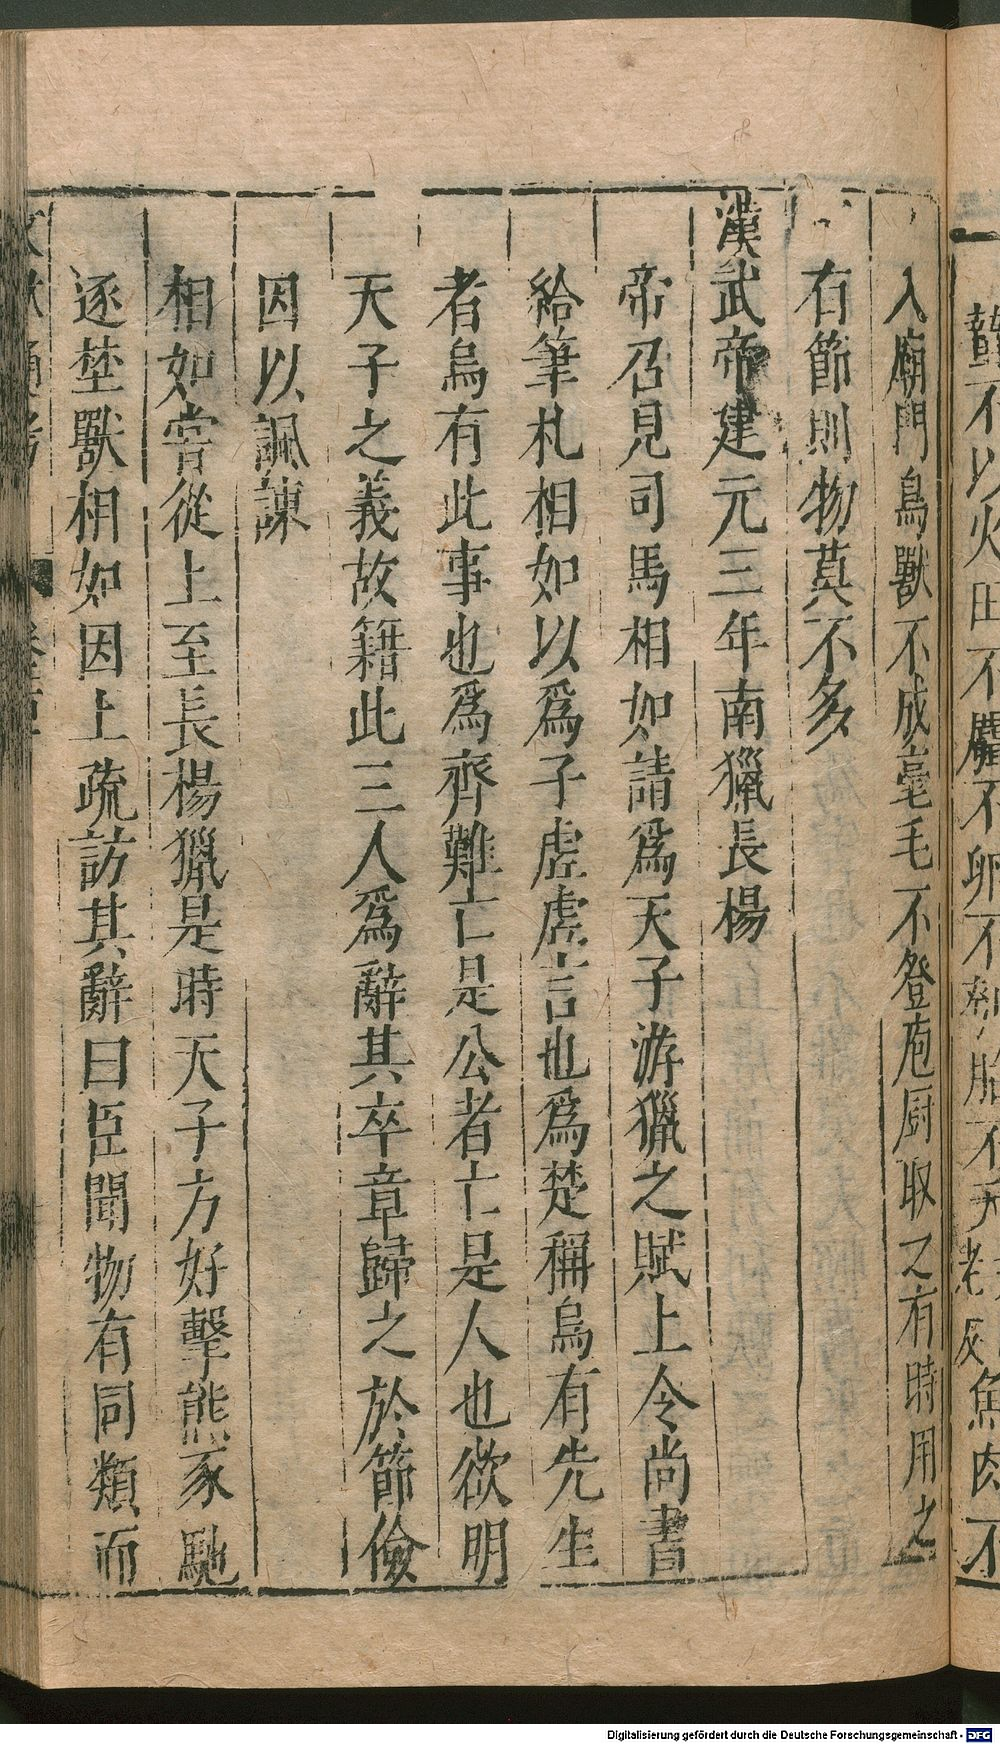 贄不以火田不麛不卵不殺胎不夭
魚肉不
入廟門鳥獸不成毫毛不登庖厨取之有時用之
有節則物莫不多
漢武帝建元三年南獵長楊
帝召見司馬相如請爲天子游獵之賦上令尚書
給筆札相如以爲子虗虗言也爲楚稱烏有先生
者烏有此事也爲齊難亡是公者亡是人也欲明
天子之義故籍此三人爲辭其卒章歸之於節儉
因以諷諫
相如甞從上至長楊獵是時天子方好擊熊豕馳
逐埜獸相如因上疏訪其辭曰臣聞物有同類而
文獻通考
Digitalisierung gefördert durch die Deutsche Forschungsgemeinschaft - DFG